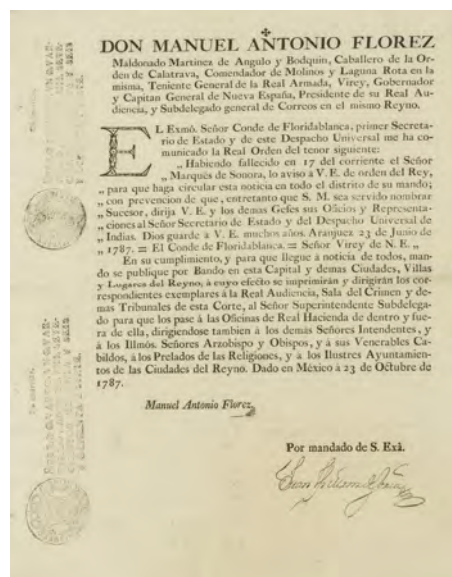 DON MANUEL ANTONIO FLOREZ
Maldonado Martinez de Angulo y Bodquin, Caballero de la Or-
den de Calatrava, Comendador de Molinos y Laguna Rota en la
misma, Teniente General de la Real Armada, Virey, Gobernador
y Capitan General de Nueva España, Presidente de su Real Au-
diencia, y Subdelegado general de Correos en el mismo Reyno.
EL Exmô. Señor Conde de Floridablanca, primer Secreta-
rio de Estado y de este Despacho Universal me ha co-
municado la Real Orden del tenor siguiente:
„ Habiendo fallecido en 17 del corriente el Señor
„ Marqués de Sonora, lo aviso à V. E. de orden del Rey,
„ para que haga circular esta noticia en todo el distrito de su mando;
„ con prevencion de que, entretanto que S. M. sea servido nombrar
„ Sucesor, dirija V. E. y los demas Gefes sus Oficios y Representa-
„ ciones al Señor Secretario de Estado y del Despacho Universal de
„ Indias. Dios guarde à V. E. muchos años. Aranjuez 23 de Junio de
„ 1787. = El Conde de Floridablanca. = Señor Virey de N. E. „
En su cumplimiento, y para que llegue à noticia de todos, man-
do se publique por Bando en esta Capital y demas Ciudades, Villas
y Lugares del Reyno, à cuyo efecto se imprimirán y dirigirán los cor-
respondientes exemplares à la Real Audiencia, Sala del Crimen y de-
mas Tribunales de esta Corte, al Señor Superintendente Subdelega-
do para que los pase à las Oficinas de Real Hacienda de dentro y fue-
ra de ella, dirigiendose tambien à los demás Señores Intendentes, y
à los Illmôs. Señores Arzobispo y Obispos, y à sus Venerables Ca-
bildos, à los Prelados de las Religiones, y à los Ilustres Ayuntamien-
tos de las Ciudades del Reyno. Dado en México à 23 de Octubre de
1787.
Manuel Antonio Florez
Por mandado de S. Exâ.